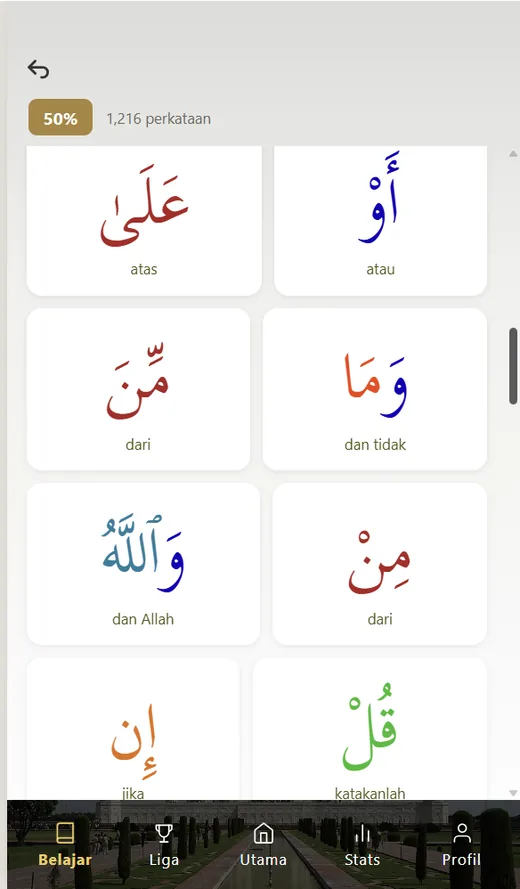 50% 1,216 perkataan
عَلَىٰ أَوْ
atas atau
مِّنَ وَمَا
dari dan tidak
وَٱللَّهُ مِنْ
dan Allah dari
إِن قُلْ
jika katakanlah
Belajar Liga Utama Stats Profil